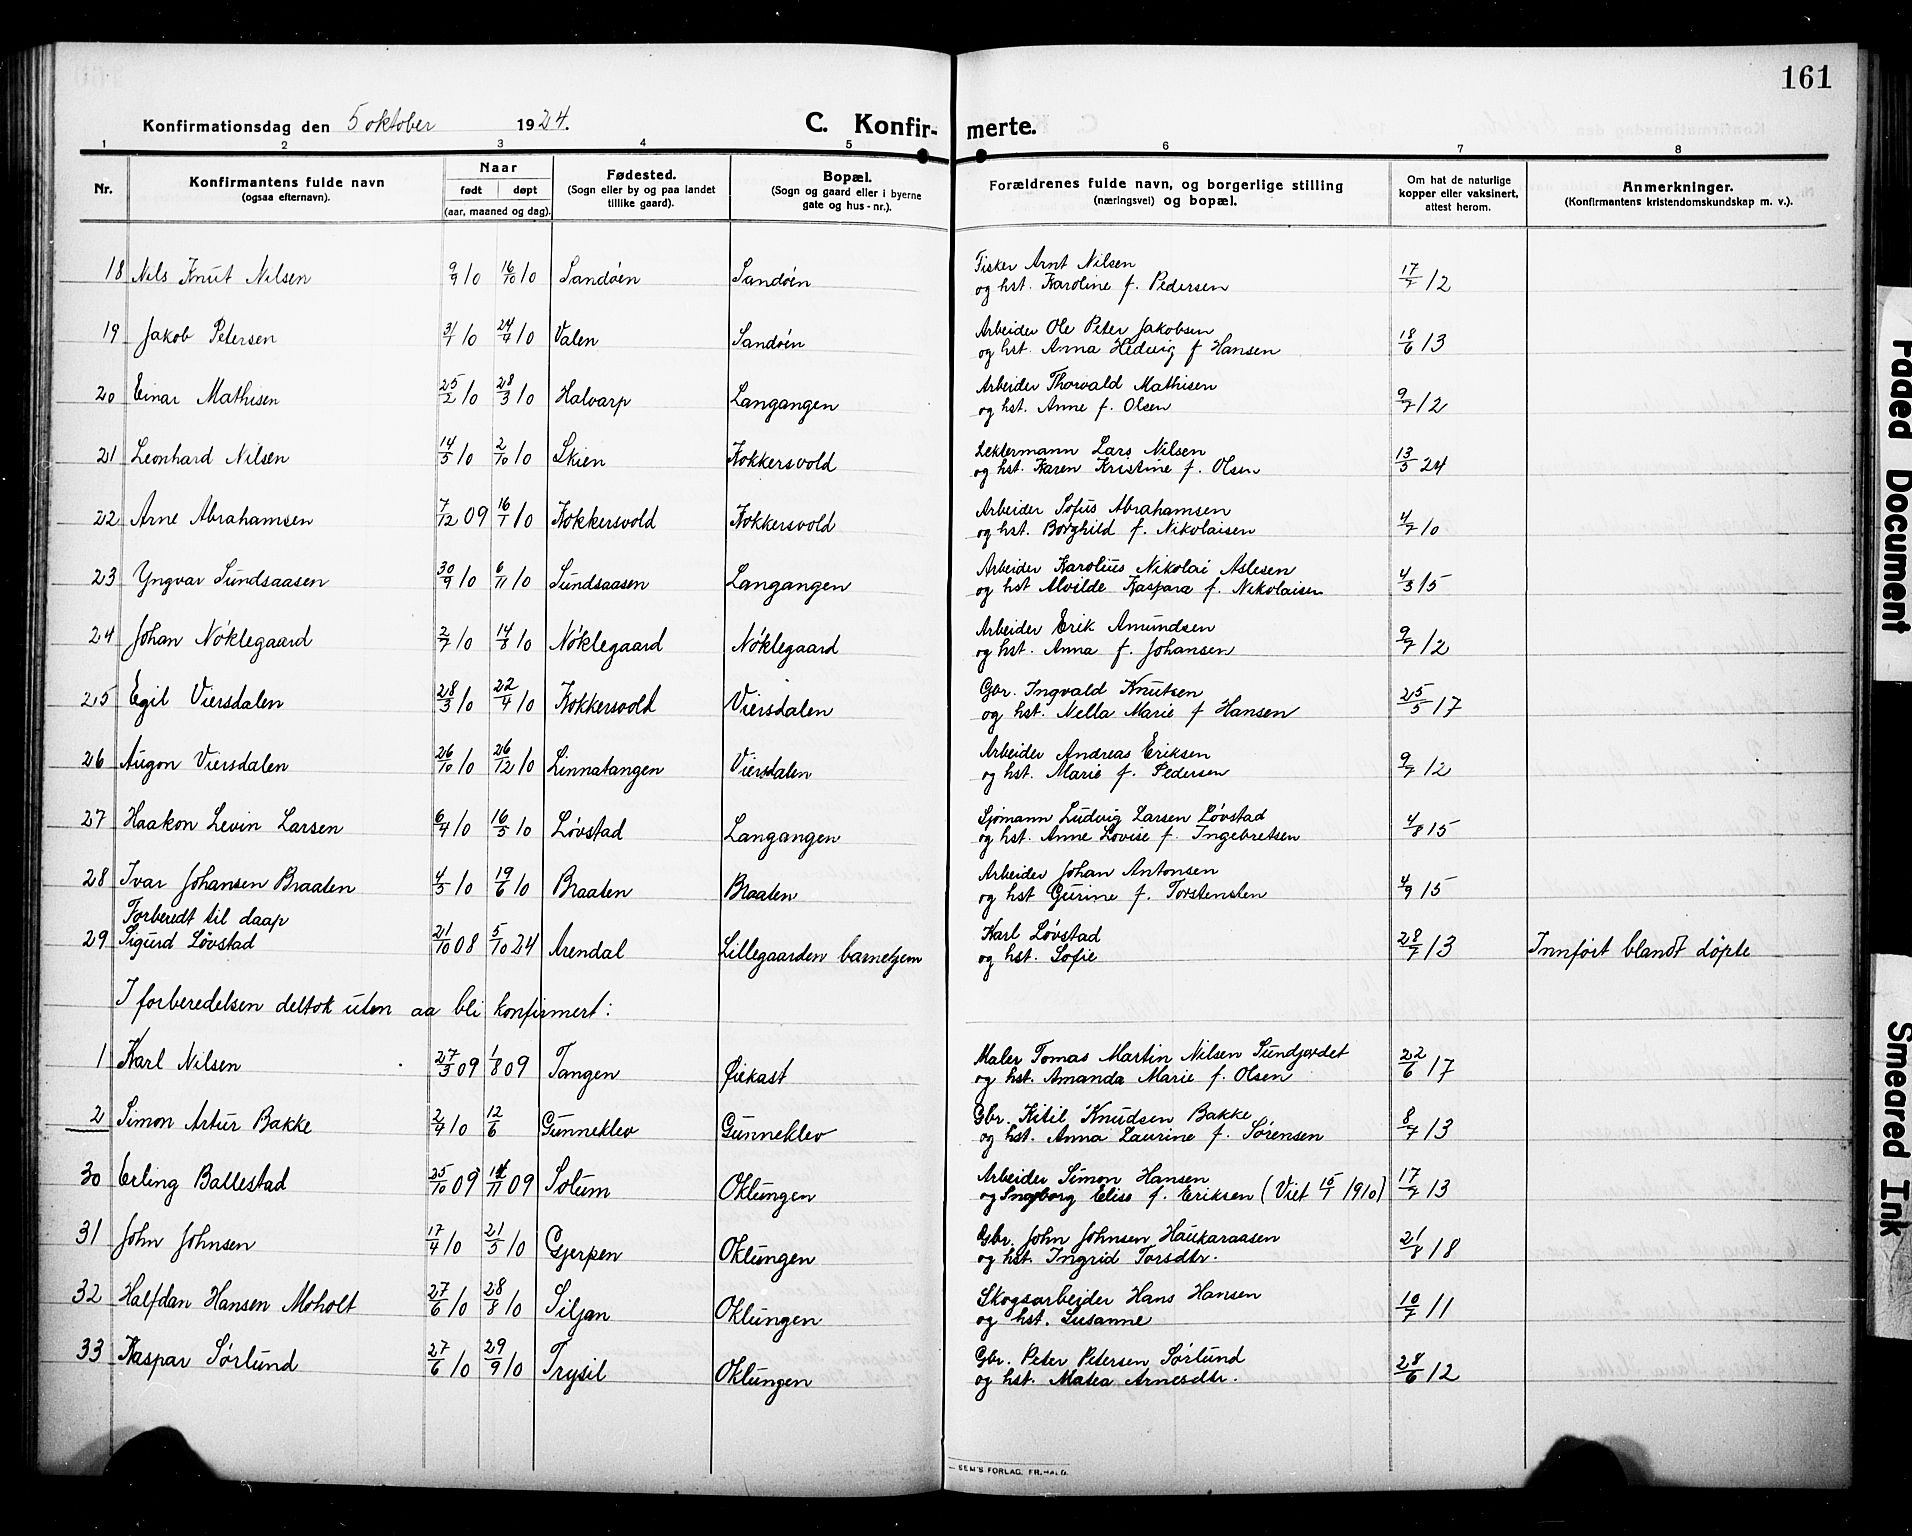 161
Konfirmationsdag den 5 oktober 1924.
C. Konfir- merte.
1 2 3 4 5 6 7 8
Nr.
Konfirmantens fulde navn
(ogsaa efternavn).
Naar
født døpt
(aar, maaned og dag).
Fødested.
(Sogn eller by og paa landet
tillike gaard).
Bopæl.
(Sogn og gaard eller i byerne
gate og hus-nr.).
Forældrenes fulde navn, og borgerlige stilling
(næringsvei) og bopæl.
Om hat de naturlige
kopper eller vaksinert,
attest herom.
Anmerkninger.
(Konfirmantens kristendomskundskap m. v.).
18 Nils Knut Nilsen 9/9 10 16/10 10 Sandøen Sandøen Fisker Arnt Nilsen 17/7 12
og hst. Karoline f. Pedersen
19 Jakob Petersen 31/1 10 24/4 10 Valen Sandøen Arbeider Ole Peter Jakobsen 18/6 13
og hst. Anna Hedvig f Hansen
20 Einar Mathisen 25/2 10 28/3 10 Halvarp Langangen Arbeider Thorvald Mathisen 9/7 12
og hst. Anne f. Olsen
21 Leonhard Nilsen 14/5 10 2/10 10 Skien Kokkersvold Lektermann Lars Nilsen 13/5 24
og hst. Karen Kristine f. Olsen
22 Arne Abrahamsen 7/12 09 16/1 10 Kokkersvold Kokkersvold Arbeider Sofus Abrahamsen 4/7 10
og hst. Borghild f. Nikolaisen
23 Yngvar Sundsaasen 30/9 10 6/11 10 Sundsaasen Langangen Arbeider Karolius Nikolai Aslesen 4/3 15
og hst Alvilde Kaspara f. Nikolaisen
24 Johan Nøklegaard 2/7 10 14/8 10 Nøklegaard Nøklegaard Arbeider Erik Amundsen 9/7 12
og hst. Anna f. Johansen
25 Egil Viersdalen 28/3 10 22/4 10 Kokkersvold Viersdalen Gbr. Ingvald Knutsen 25/5 17
og hst. Nella Marie f Hansen
26 Augon Viersdalen 26/10 10 26/12 10 Linnatangen Viersdalen Arbeider Andreas Eriksen 9/7 12
og hst. Marie f. Pedersen
27 Haakon Levin Larsen 6/4 10 16/5 10 Løvstad Langangen Sjømann Ludvig Larsen Løvstad 4/8 15
og hst. Anne Lovise f. Ingebretsen
28 Ivar Johansen Braaten 4/5 10 19/6 10 Braaten Braaten Arbeider Johan Antonsen 4/9 15
og hst Gurine f. Torstensten
Forberedt til daap
29 Sigurd Løvstad 21/10 08 5/10 24 Arendal Lillegaarden barnehjem Karl Løvstad 28/7 13 Innført blandt døpte
og hst. Sofie
I forberedelsen deltok uten aa bli konfirmert:
1 Karl Nilsen 27/5 09 1/8 09 Tangen Øiekast Maler Tomas Martin Nilsen Sundjordet 22/6 17
og hst. Amanda Marie f. Olsen
2 Simon Artur Bakke 2/4 10 12/6 Gunneklev Gunneklev Gbr. Kitil Knudsen Bakke 8/7 13
og hst. Anna Laurine f. Sørensen
30 Erling Ballestad 25/10 09 14/11 09 Solum Oklungen Arbeider Simon Hansen 17/7 13
og Ingborg Elise f. Eriksen (Viet 16/7 1910)
31 John Johnsen 17/4 10 21/5 10 Gjerpen Oklungen Gbr. John Johnsen Haukaraasen 21/8 18
og hst. Ingrid Torsdtr.
32 Halfdan Hansen Moholt 27/6 10 28/8 10 Siljan Oklungen Skogsarbeider Hans Hansen 10/7 11
og hst. Susanne
33 Kaspar Sørlund 27/6 10 29/9 10 Trysil Oklungen Gbr. Peter Petersen Sørlund 28/6 12
og hst. Matea Arnesdtr.
SEM'S FORLAG, FR.HALD.
Faded Document
Smeared Ink